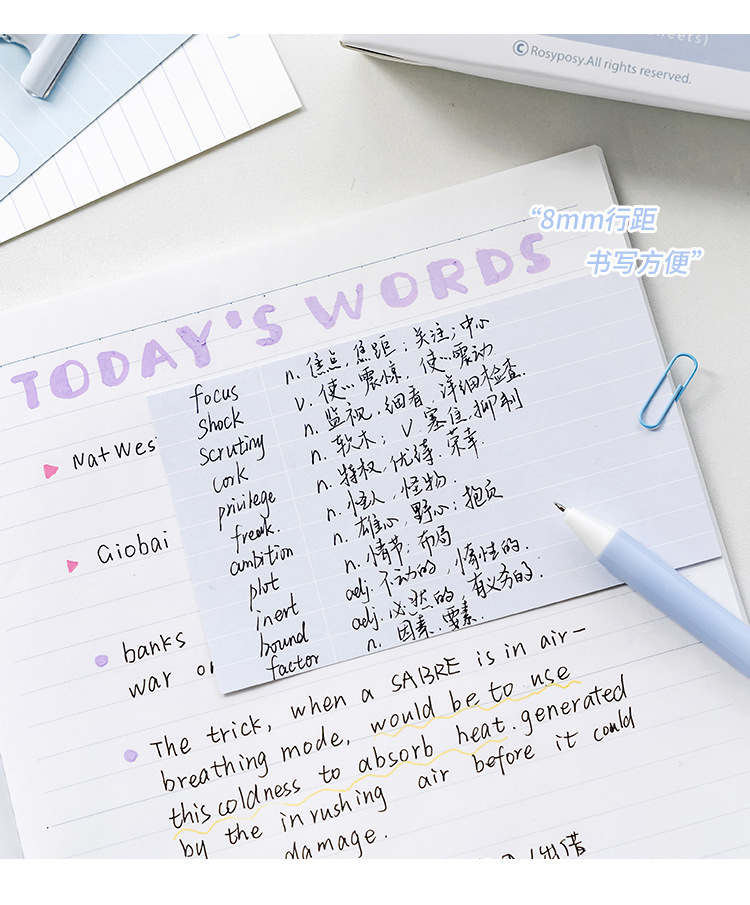 sheets)
© Rosyposy.All rights reserved.
“8mm行距
书写方便”
TODAY'S WORDS
focus n. 焦点,焦距;关注;中心
shock v. 使…震惊,使…震动
scrutiny n. 监视,细看,详细检查.
cork n. 软木; v. 塞住,抑制
privilege n. 特权,优待,荣幸.
freak. n. 怪人,怪物.
ambition n. 雄心,野心;抱负
plot n. 情节;布局
inert adj. 不动的,惰性的.
bound adj. 必然的,有义务的.
factor n. 因素.要素.
NatWes
Giobai
banks
war or
The trick, when a SABRE is in air-
breathing mode, would be to use
this coldness to absorb heat generated
by the inrushing air before it could
damage.